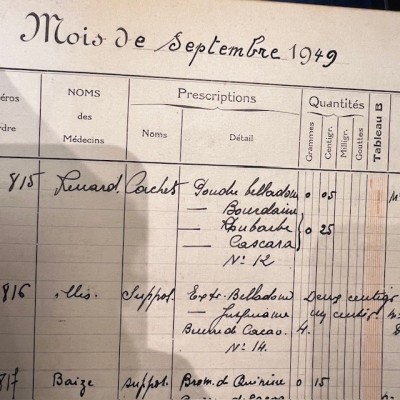 Mois de Septembre 1949
éros
rdre
NOMS
des
Médecins
Prescriptions
Noms
Détail
Quantités
Grammes
Centigr.
Milligr.
Gouttes
Tableau B
815 Renard. Cachet Poudre belladone 0 05
— Bourdaine
— Rhubarbe 0 25
— Cascara
N° 12
816 Suppos. Extr. Belladone Deux centigr
— Jusquiame un centigr.
Beurre de Cacao. 4.
N° 14.
817 Baize suppos. Brom. de Quinine 0 15